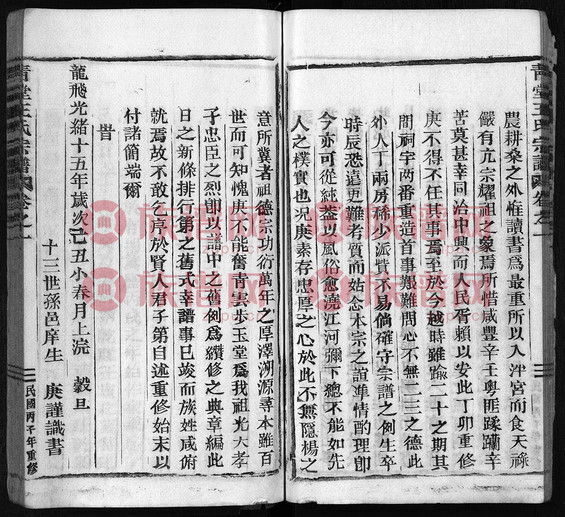 青堂王氏宗譜 卷之一
農耕桑之外惟讀書爲最重所以入泮宮而食天祿
嚴有亢宗耀祖之象焉所惜咸豐辛王粵匪蹂躪辛
苦莫甚幸同治中興而人民胥賴以安此丁卯重修
庚不得不任其事焉至於今越時雖踰二十之期其
間祠宇兩番重造首事艱難問心不無二三之德此
外人丁兩房稀少派費不易倘確守宗譜之例生卒
時辰恐遠更難者質而始念木宗之誼準情酌理卽
今亦可從純盖以風俗愈澆江河彌下總不能如先
人之樸實也況庚素存忠厚之心於此不無隱楊之
意所冀者祖德宗功衍萬年之厚澤溯源尋本雖百
世而可知愧庚不能奮青雲步玉堂爲我祖光大孝
子忠臣之烈卽以譜中之舊例爲纘修之典章編此
日之新條排行第之舊式幸譜事已竣而族姓咸俯
就焉故不敢乞序於賢人君子第自述重修始末以
付諸簡端爾
旹
龍飛光緒十五年歲次己丑小春月上浣 穀旦
十三世孫邑庠生 庚謹識書
青堂王氏宗譜 卷之一
民國丙午年重修
族譜网
族谱网